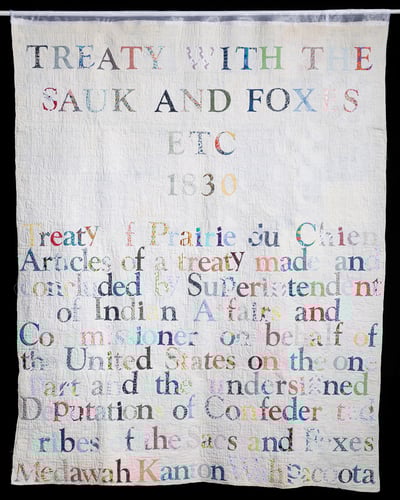 TREATY WITH THE
SAUK AND FOXES
ETC
1830
Treaty of Prairie du Chien
Articles of a treaty made and
concluded by Superintendent
of Indian Affairs and
Commissioner on behalf of
the United States on the one
part and the undersigned
Deputation of Confederated
tribes of the Sacs and Foxes
Medawah Kanton Wahpacoota